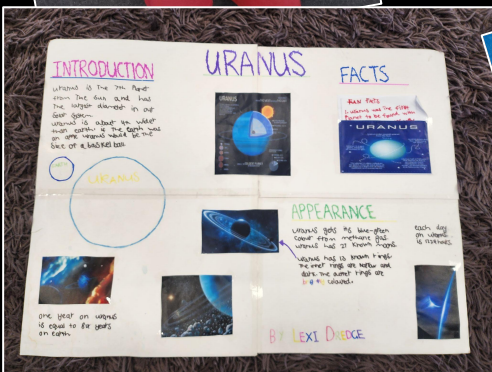 URANUS
INTRODUCTION
Uranus is the 7th Planet
from the sun and has
the larger diament in out
Solar System.
Uranus is about 4x wider
than earth: is the earth was
an apple uranus would be the
size of a basket ball
URANUS
one year on uranus
is equal to 84 years
on earth
FACTS
Fun Facts
1. Uranus was the first
Planet to be found with
URANUS
URANUS
APPEARANCE
Uranus gets its blue-green
colour from methane gas.
Uranus has 27 Known moons.
Uranus has 13 known rings
The inner rings are narrow and
dark the outer rings are
brightly coloured.
each day
on uranus
is 17.24 hours.
By LEXI DREDGE